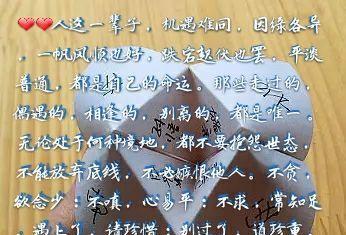 ❤❤人这一辈子，机遇难同，因缘各异
，一帆风顺也好，跌宕起伏也罢，平淡
普通，都是自己的命运。那些走过的，
偶遇的，相逢的，别离的，都是唯一。
无论处于何种境地，都不要抱怨世态，
不能放弃底线，不必嫉恨他人。不贪，
欲念少；不嗔，心易平；不求，常知足
，遇上了，请珍惜；别过了，道珍重。